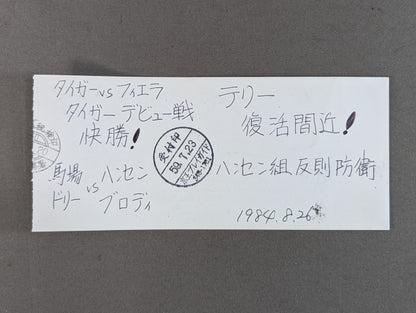 タイガー vs フィエラ
タイガー デビュー戦
快勝!
馬場 vs ハンセン
ドリー ブロディ
受付印
59.7.23
テリー
復活間近!
ハンセン組 反則防衛
1984.8.26